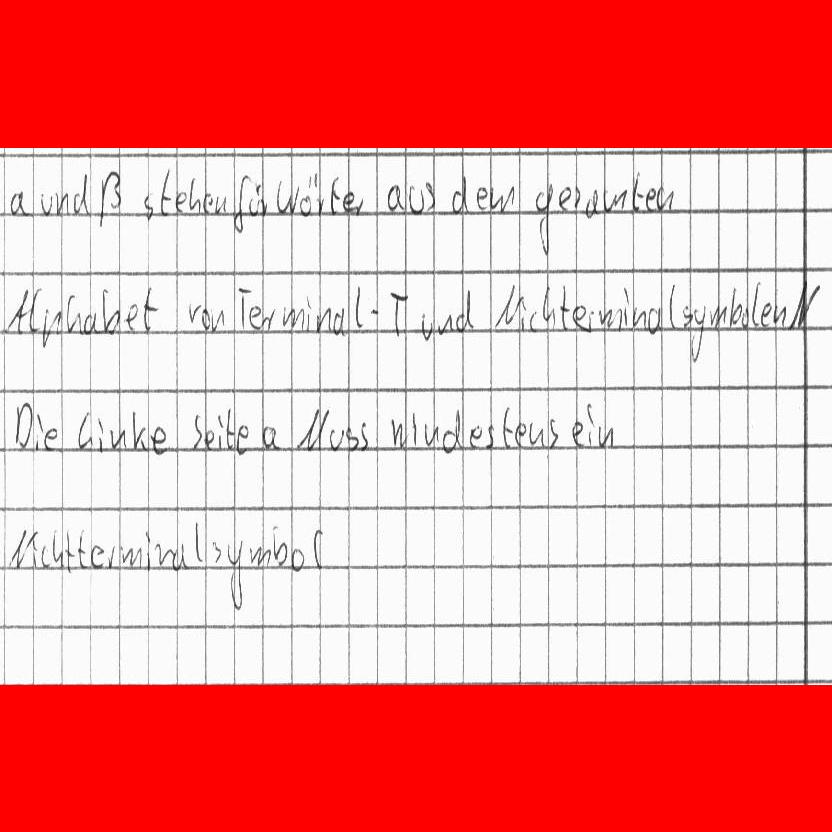 a und β stehen für Wörter aus dem gesamten
Alphabet von Terminal-T und Nichterminalsymbolen N
Die Linke Seite a Muss mindestens ein
Nichtterminalsymbol